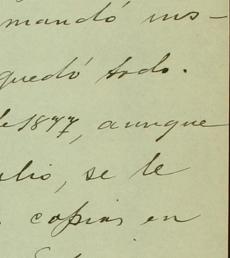 mandó ins-
quedó todo.
de 1877, aunque
ulio, se le
copias en